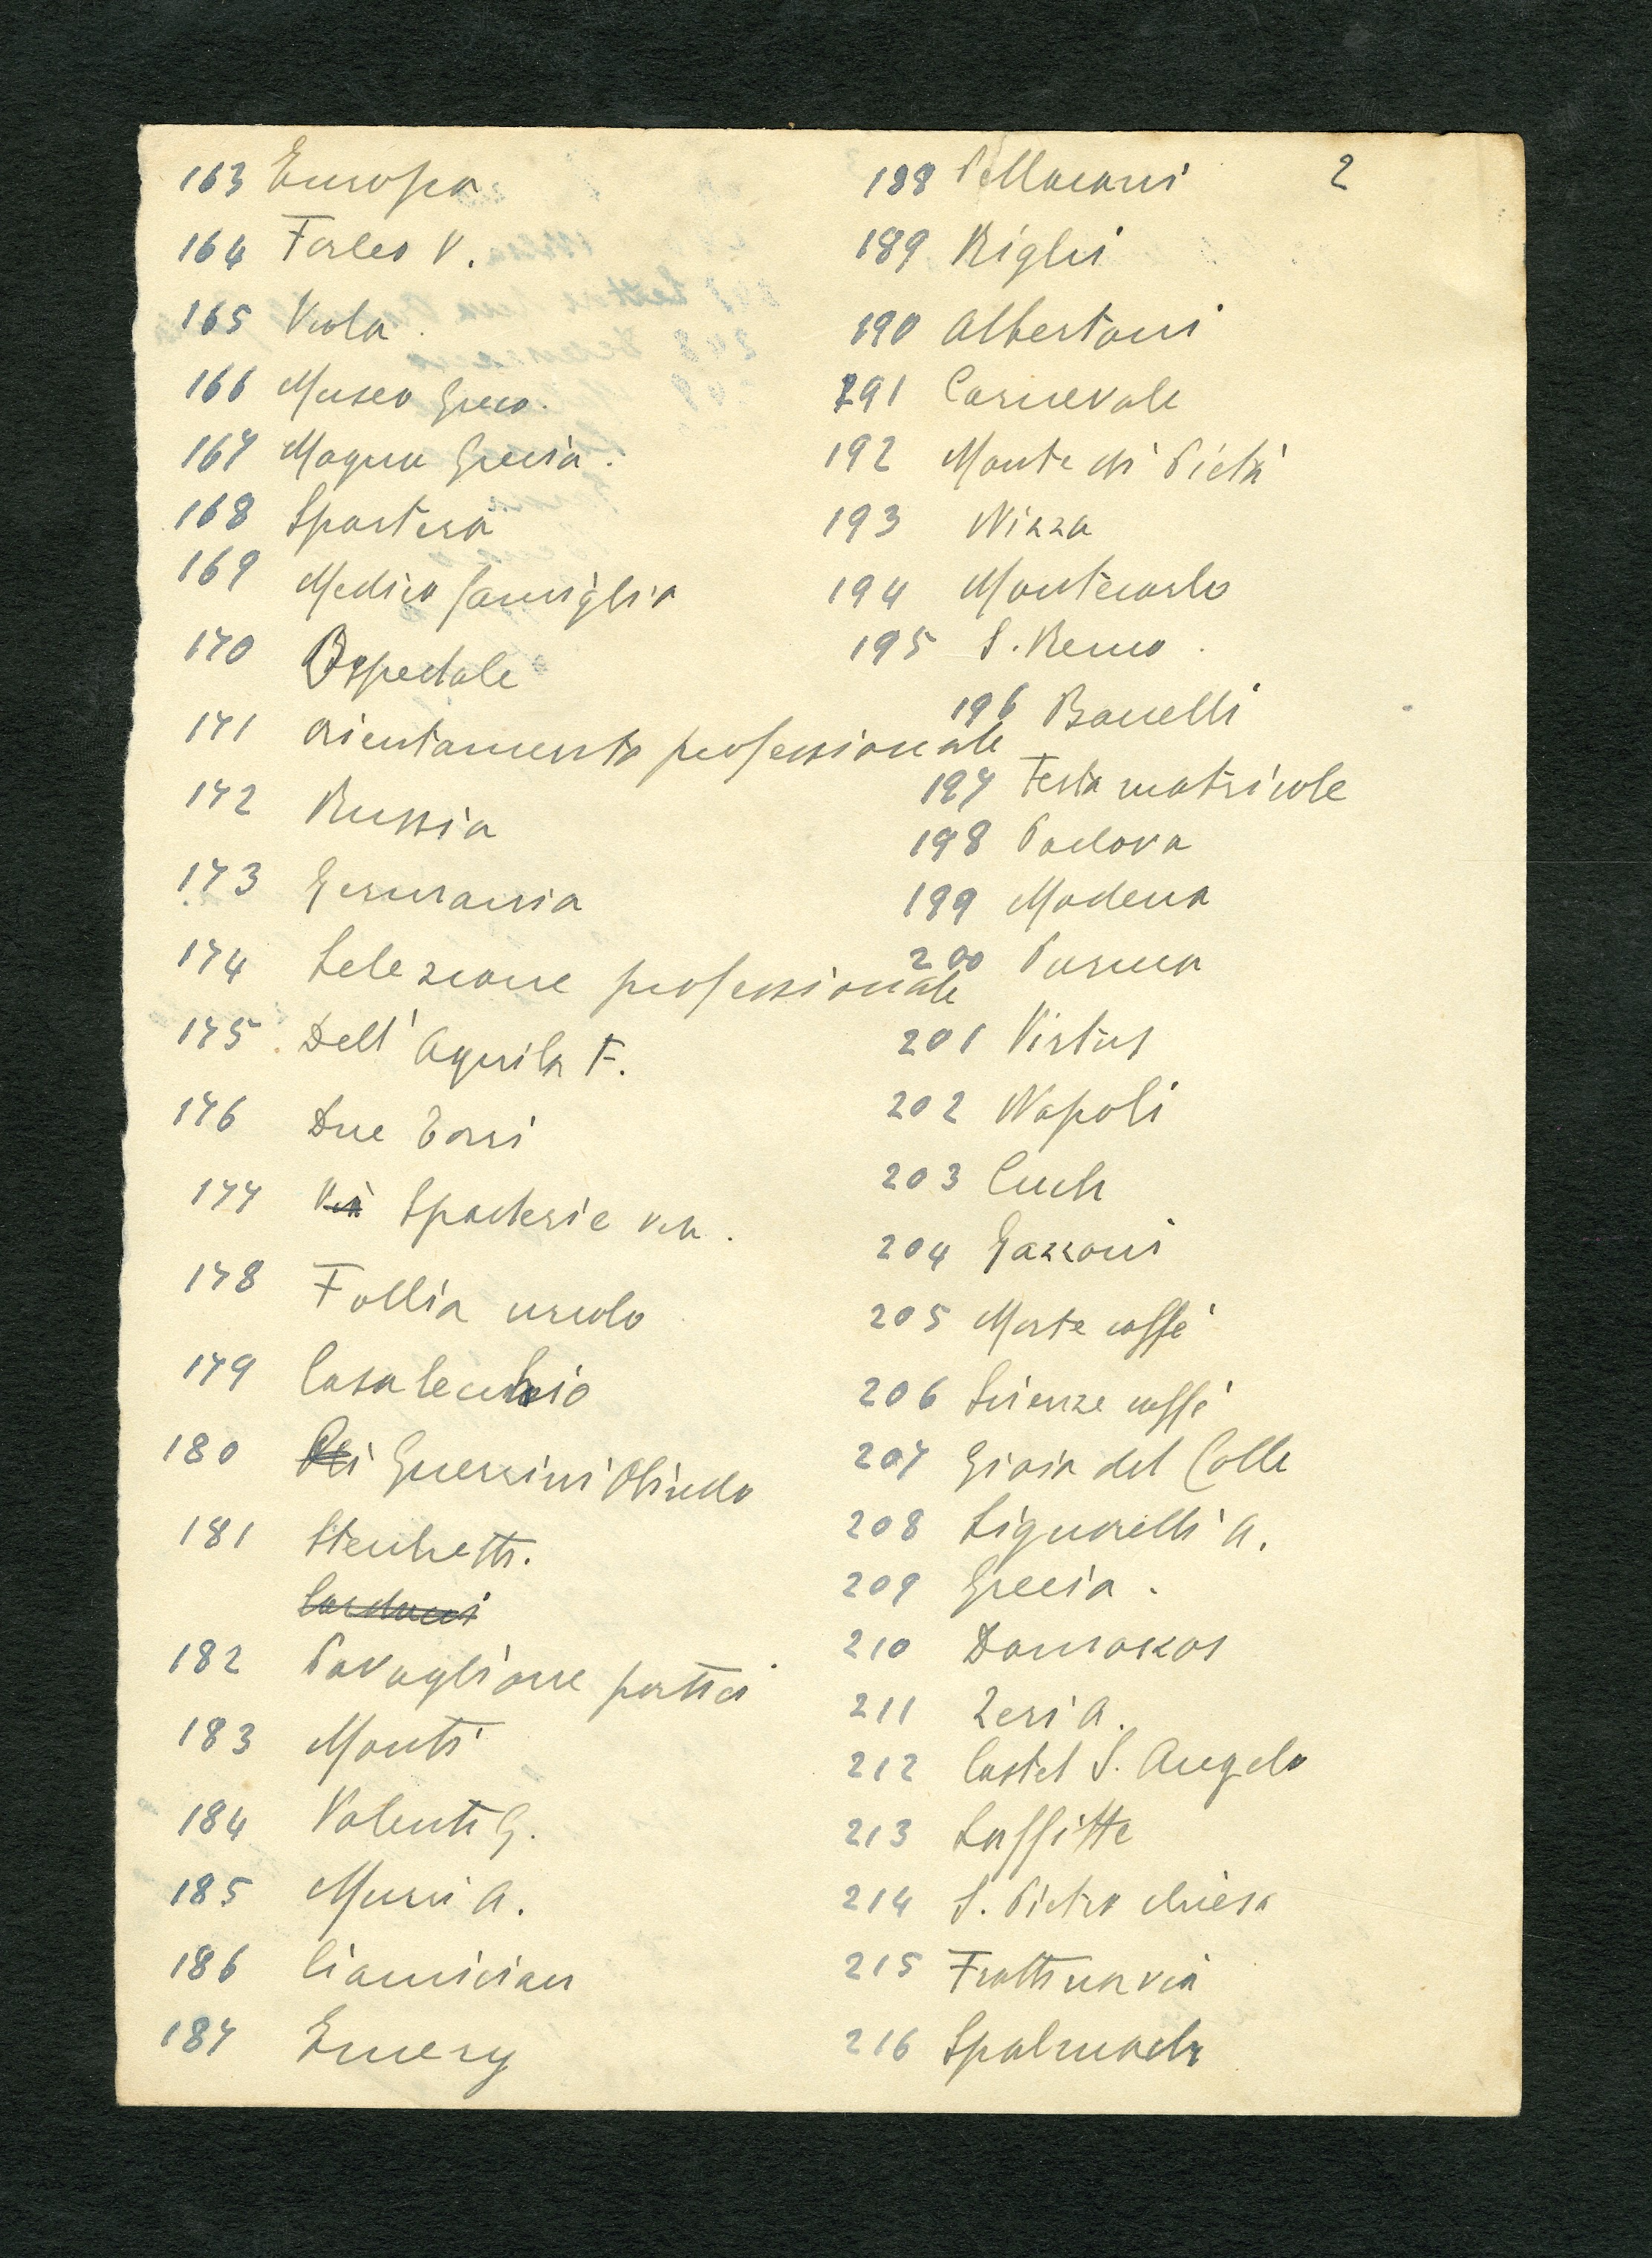 2
163 Europa
164 Forleo V.
165 Viola
166 Museo Greco.
167 Magna Grecia.
168 Spartera
169 Medico famiglia
170 Ospedale
171 orientamento professionale
172 Russia
173 Germania
174 Selezione professionale
175 Dell'Aquila F.
176 Due Torri
177 Via Spaderie via.
178 Follia
179 Casalecchio
180 Guerrini Olindo
181 Stecchetti.
Carducci
182 Pavaglione portici
183 Monti
184 Valenti G.
185 Murri A.
186 Ciamician
187 Emery
188 Pellacani
189 Righi
190 Albertoni
191 Carnevale
192 Monte di Pietà
193 Nizza
194 Montecarlo
195 S. Remo.
196 Banelli
197 Festa matricole
198 Padova
199 Modena
200 Parma
201 Virtus
202 Napoli
203
204 Gazzoni
205 Morte caffè
206 Scienze caffè
207 Gioia del Colle
208 Signorelli A.
209 Grecia.
210 Damaskos
211 Zeri A.
212 Castel S. Angelo
213 Laffitte
214 S. Pietro chiesa
215 Frattina via
216 Spalmach